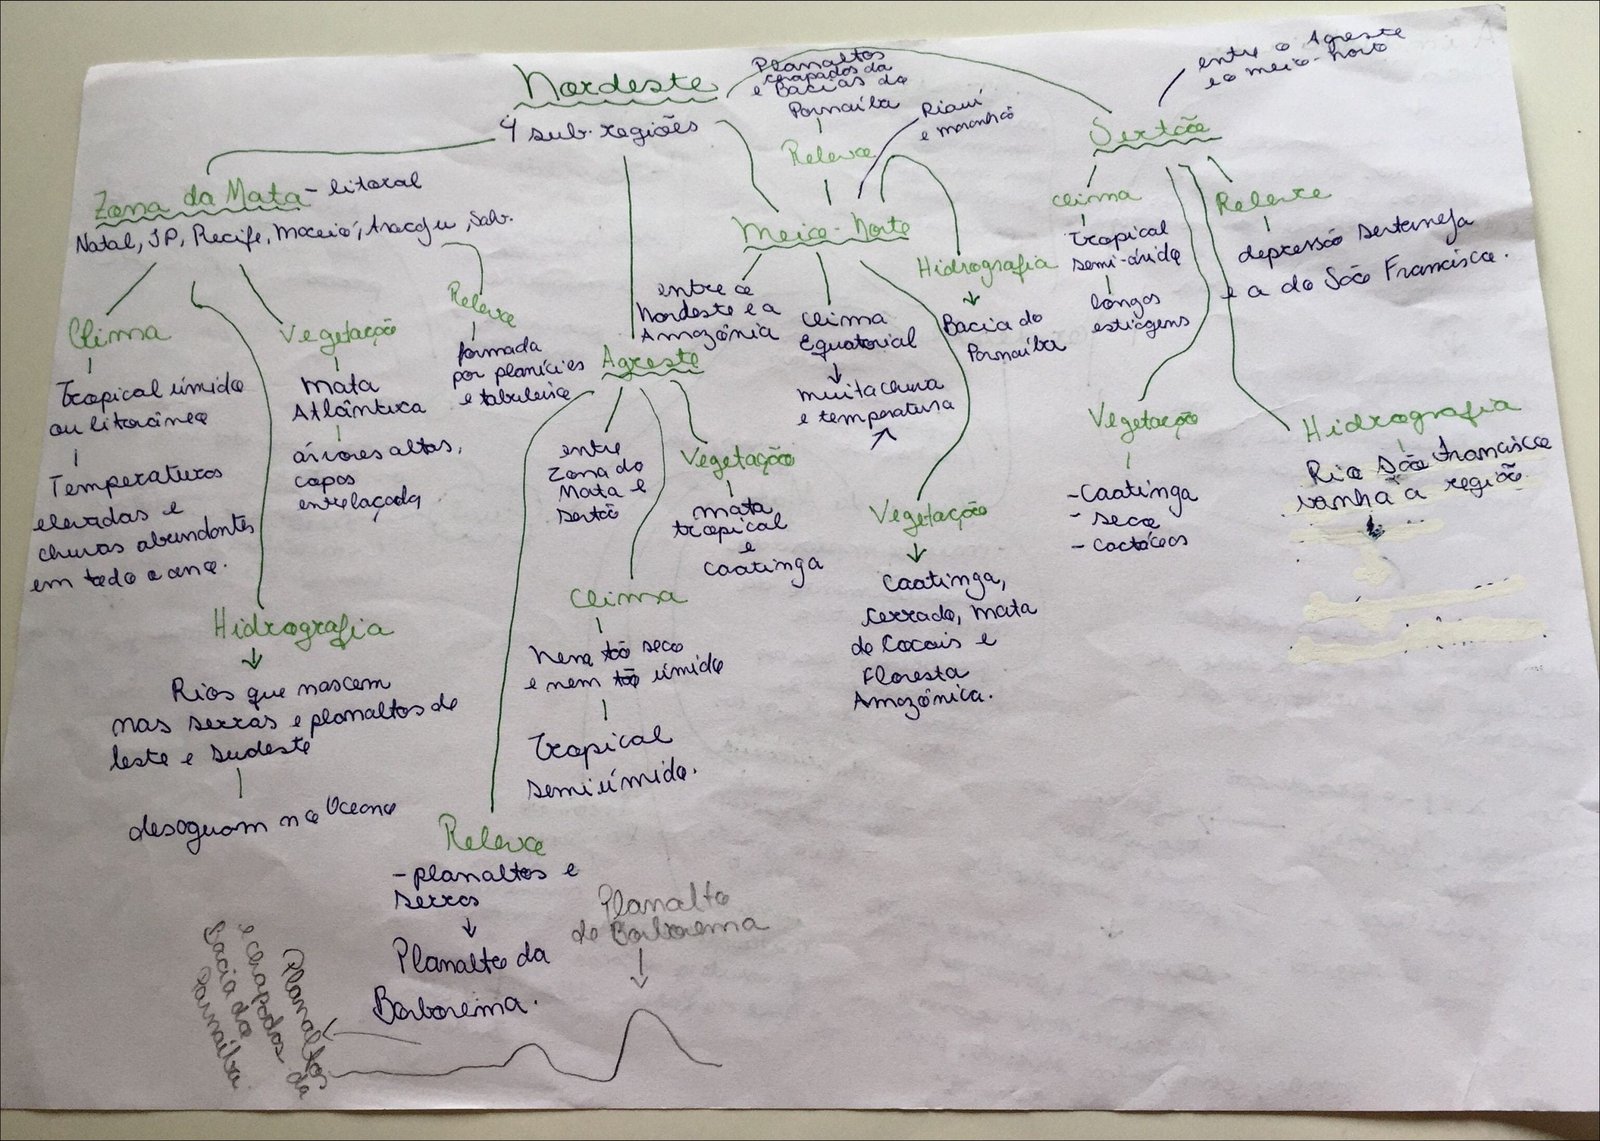 Nordeste
4 sub-regiões
Zona da Mata - litoral
Natal, JP, Recife, Maceió, Aracaju, Salv.
Clima
Tropical úmido
ou litorâneo
Temperaturas
elevadas e
chuvas abundantes
em todo o ano.
Hidrografia
Rios que nascem
nas serras e planaltos de
leste e sudeste
desaguam no Oceano
Vegetação
Mata
Atlântica
árvores altas,
copas
entrelaçada
Relevo
formada
por planícies
e tabuleiro
Agreste
entre
Zona da
Mata e
Sertão
Vegetação
mata
tropical
e
Caatinga
Clima
Nem tão seco
e nem tão úmido
Tropical
semiúmido.
Relevo
- planaltos e
serras
Planalto da
Borborema.
Meio-Norte
Relevo
Planaltos
chapadas da
e Bacias do
Parnaíba
Piauí
e maranhão
entre o
Nordeste e a
Amazônia
Clima
Equatorial
muita chuva
e temperatura
Hidrografia
Bacia do
Parnaíba
Vegetação
Caatinga,
cerrado, mata
de Cocais e
Floresta
Amazônica.
Sertão
entre o Agreste
e o meio-norte
Clima
Tropical
semi-árido
longas
estiagens
Relevo
depressão sertaneja
e a do São Francisco.
Vegetação
- Caatinga
- seca
- cactáceas
Hidrografia
Rio São Francisco
banha a região
Planalto
de Borborema
Planaltos
e chapadas da
Bacia do
Parnaíba